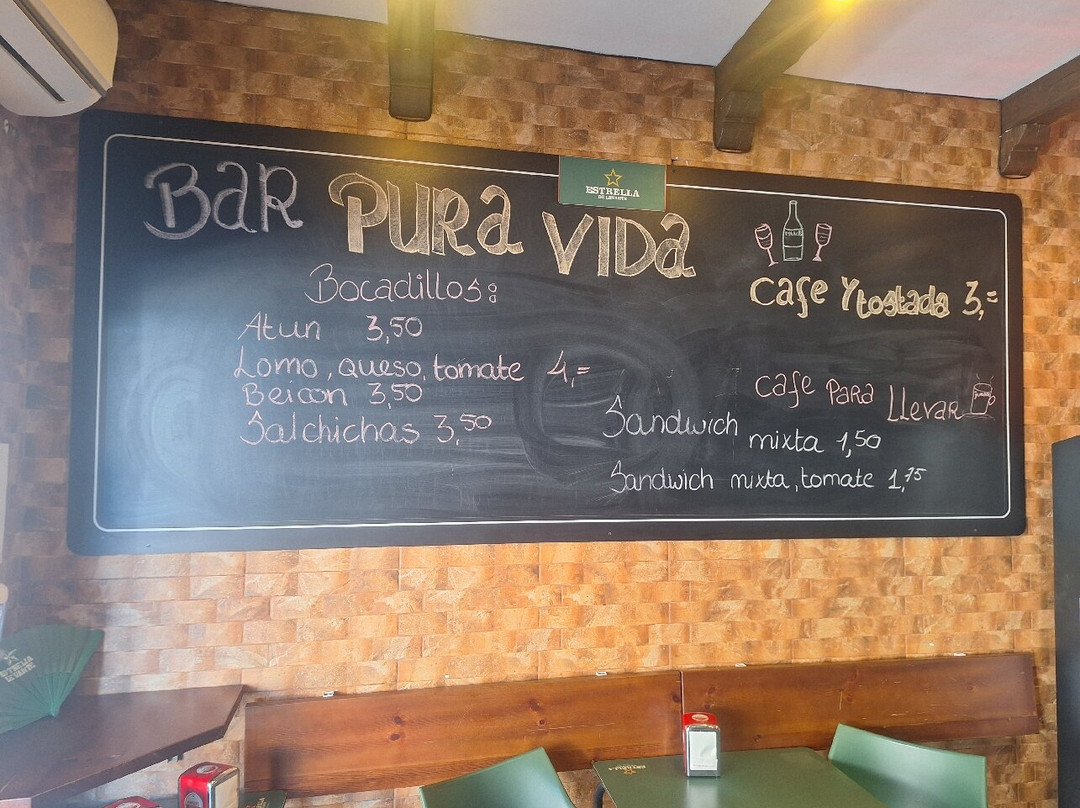 BAR PURA VIDA
ESTRELLA
DE LEVANTE
Bocadillos:
Atun 3,50
Lomo, queso, tomate 4,=
Beicon 3,50
Salchichas 3,50
Cafe Y tostada 3,=
cafe PARA Llevar
Sandwich mixta 1,50
Sandwich mixta, tomate 1,75
ESTRELLA